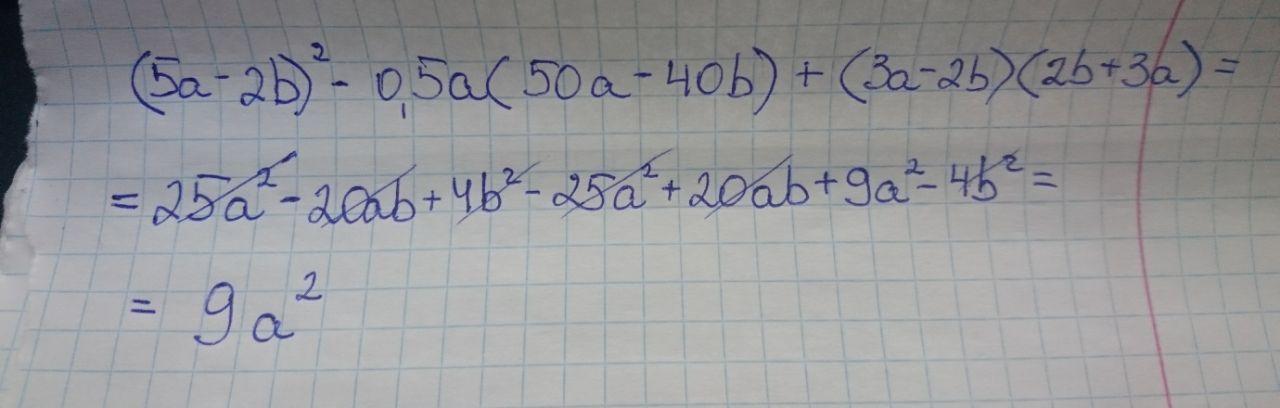 (5a-2b)² - 0,5a(50a-40b)+(3a-2b)(2b+3a)=
=25a²-20ab+4b²-25a²+20ab+9a²-4b²=
= 9a²